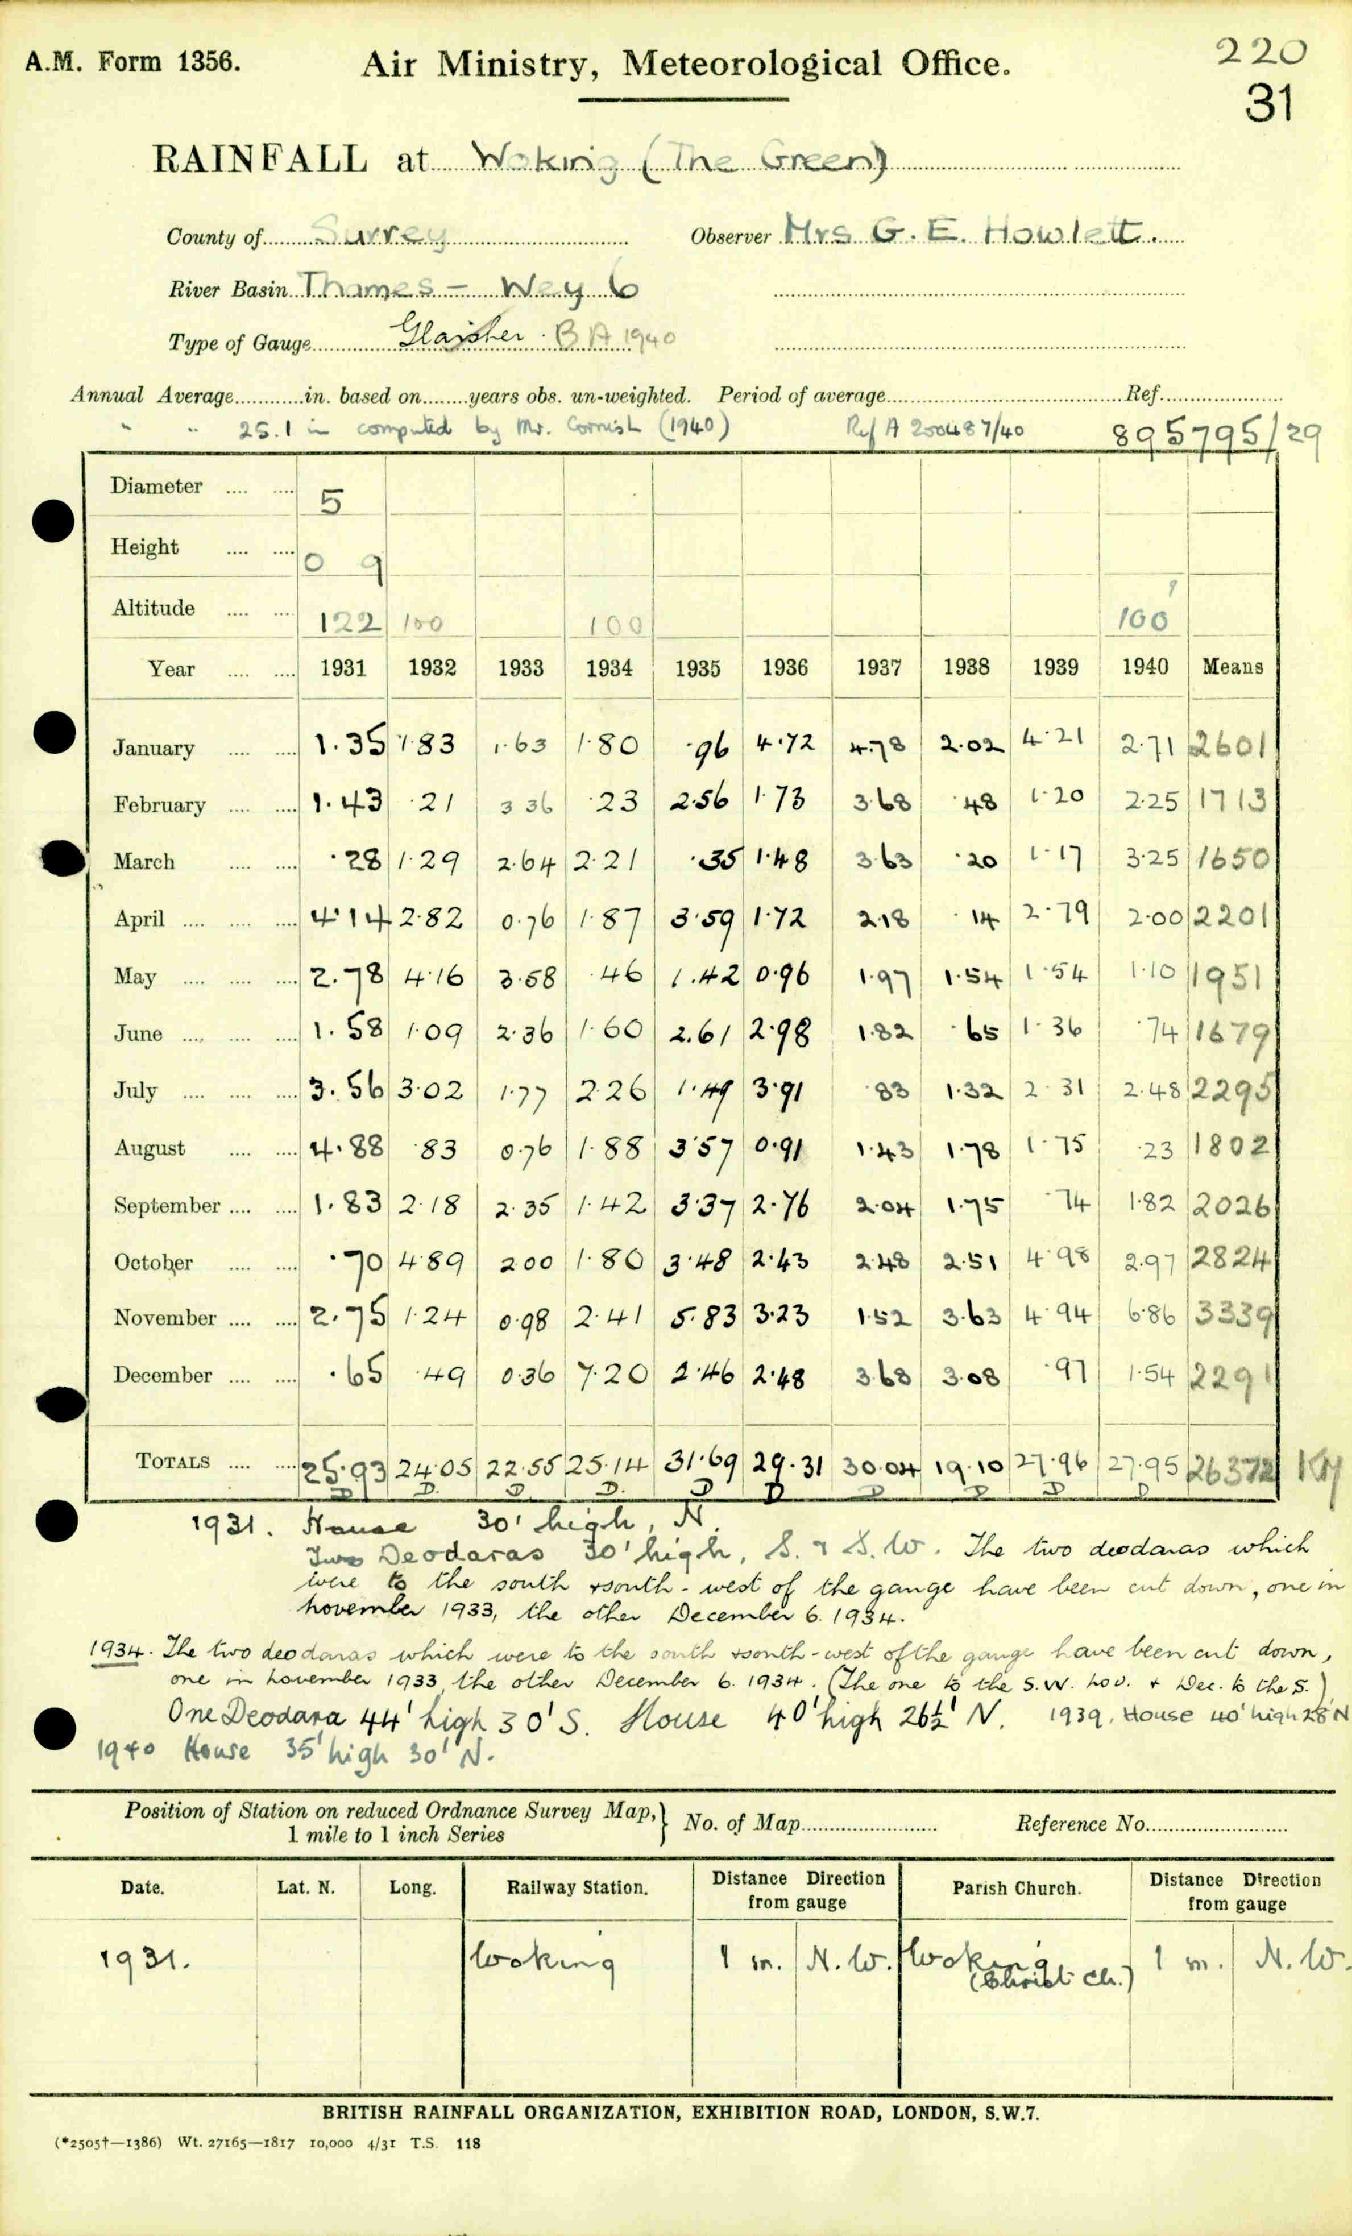 A.M. Form 1356. Air Ministry, Meteorological Office. 220
31
RAINFALL at Woking (The Green)
County of Surrey Observer Mrs G. E. Howlett.
River Basin Thames - Wey 6
Type of Gauge Glaisher. BA 1940
Annual Average............in. based on........years obs. un-weighted. Period of average........Ref........
" " 25.1 in computed by Mr. Cornish (1940) Ref A 200487/40 895795/29
Diameter 5
Height 0 9
Altitude 122 100 100 100 ?
Year 1931 1932 1933 1934 1935 1936 1937 1938 1939 1940 Means
January 1.35 1.83 1.63 1.80 .96 4.72 4.78 2.02 4.21 2.71 2601
February 1.43 .21 3 36 .23 2.56 1.73 3.68 .48 1.20 2.25 1713
March .28 1.29 2.64 2.21 .35 1.48 3.63 .20 1.17 3.25 1650
April 4.14 2.82 0.76 1.87 3.59 1.72 2.18 .14 2.79 2.00 2201
May 2.78 4.16 3.58 .46 1.42 0.96 1.97 1.54 1.54 1.10 1951
June 1.58 1.09 2.36 1.60 2.61 2.98 1.82 .65 1.36 .74 1679
July 3.56 3.02 1.77 2.26 1.49 3.91 .83 1.32 2.31 2.48 2295
August 4.88 .83 0.76 1.88 3.57 0.91 1.43 1.78 1.75 .23 1802
September 1.83 2.18 2.35 1.42 3.37 2.76 2.04 1.75 .74 1.82 2026
October .70 4.89 2.00 1.80 3.48 2.43 2.48 2.51 4.98 2.97 2824
November 2.75 1.24 0.98 2.41 5.83 3.23 1.52 3.63 4.94 6.86 3339
December .65 .49 0.36 7.20 2.46 2.48 3.68 3.08 .97 1.54 2291
TOTALS 25.93 24.05 22.55 25.14 31.69 29.31 30.04 19.10 27.96 27.95 26372 KM
D D. D. D. D D D D D D
1931. House 30' high, N.
Two Deodaras 30' high, S. & S.W. The two deodaras which
were to the south & south-west of the gauge have been cut down, one in
november 1933, the other December 6. 1934.
1934. The two deodaras which were to the south & south-west of the gauge have been cut down,
one in november 1933, the other December 6. 1934. (The one to the S.W. nov. & Dec. to the S.)
One Deodara 44' high 30' S. House 40' high 26½' N. 1939. House 40' high 28' N
1940 House 35' high 30' N.
Position of Station on reduced Ordnance Survey Map, } No. of Map........ Reference No........
1 mile to 1 inch Series
Date. Lat. N. Long. Railway Station. Distance Direction from gauge Parish Church. Distance Direction from gauge
1931. Woking 1 m. N.W. Woking (Christ Ch.) 1 m. N.W.
BRITISH RAINFALL ORGANIZATION, EXHIBITION ROAD, LONDON, S.W.7.
(*2505†—1386) Wt. 27165—1817 10,000 4/31 T.S. 118